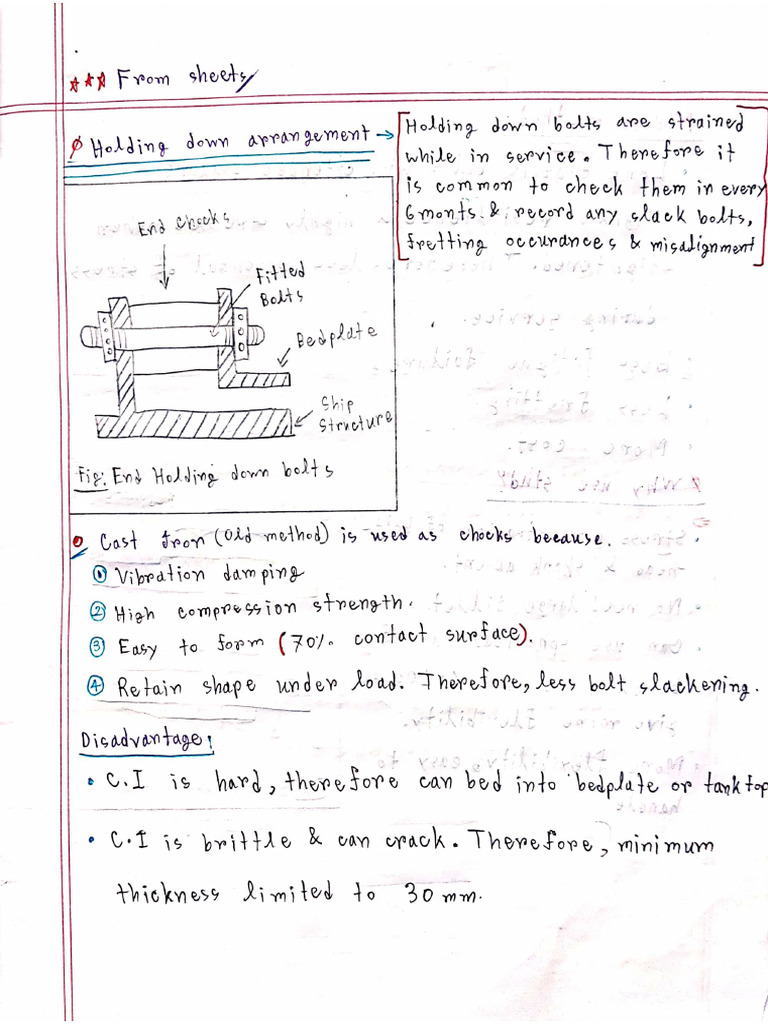 *** From sheets/
Ø Holding down arrangement →
Holding down bolts are strained
while in service. Therefore it
is common to check them in every
6 monts. & record any slack bolts,
fretting occurances & misalignment
End chocks
Fitted
Bolts
Bedplate
Ship
Structure
Fig: End Holding down bolts
Cast Iron (old method) is used as chocks because.
① Vibration damping
② High compression strength.
③ Easy to form (70% contact surface).
④ Retain shape under load. Therefore, less bolt slackening.
Disadvantage:
• C.I is hard, therefore can bed into bedplate or tank top
• C.I is brittle & can crack. Therefore, minimum
thickness limited to 30 mm.